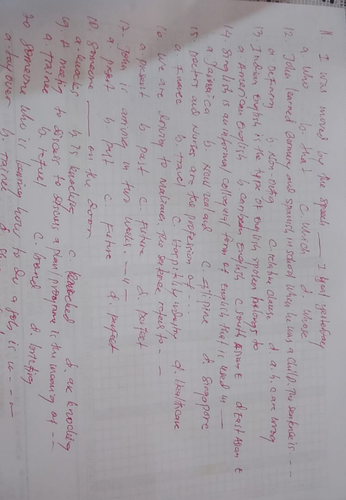 11 I was moved by the speech ___ I heard yesterday
a. who b. that c. which d. whose
12. John learned German and Spanish in school when he was a child. The sentence is ---
a. defining b. non-defining c. relative clause d. a, b, c are wrong
13 Indian English is the type of English spoken belongs to
a American English b. Caribbean English c. South Asian E d. East Asian E
14 English is an informal colloquial form of English that is used in ___
a Jamaica b. New Zealand c. Philippine d. Singapore
15 Doctors and nurses are the profession of ---
a. Finance b. travel c. hospitality industry d. Healthcare
16 We are going to The sentence refers to ---
a. present b. past c. future d. perfect
17. John is among in two weeks. ---
a. present b. past c. future d. perfect
18. Someone ___ on the door
a. knocks b. is knocking c. knocked d. are knocking
19. A meeting to discuss a plan/programme is the meaning of ---
a. trainee b. c. brand d. briefing
20 Someone who is learning how to do a job, is a ---
a. b. trainee